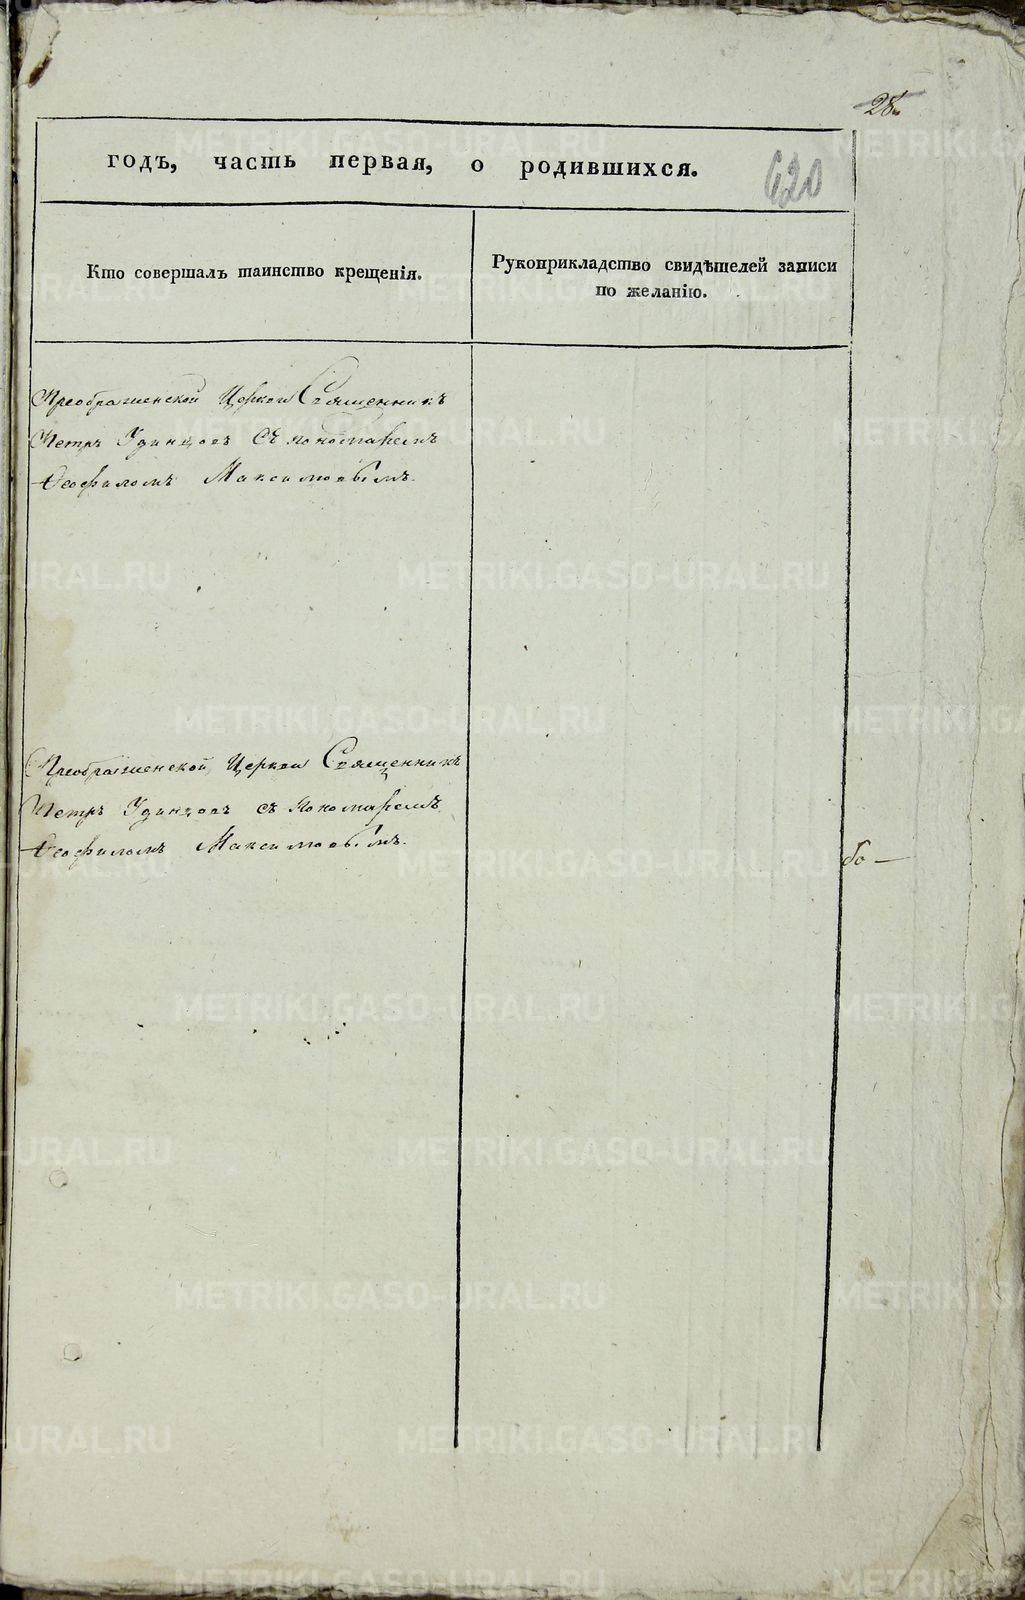 28.
годъ, часть первая, о родившихся.
620
Кто совершалъ таинство крещенія.
Рукоприкладство свидѣтелей записи
по желанію.
Преображенской Церкви Священникъ
Петръ Удинцовъ съ пономаремъ
Ѳеофиломъ Максимовымъ.
Преображенской Церкви Священникъ
Петръ Удинцовъ съ пономаремъ
Ѳеофиломъ Максимовымъ.
METRIKI.GASO-URAL.RU